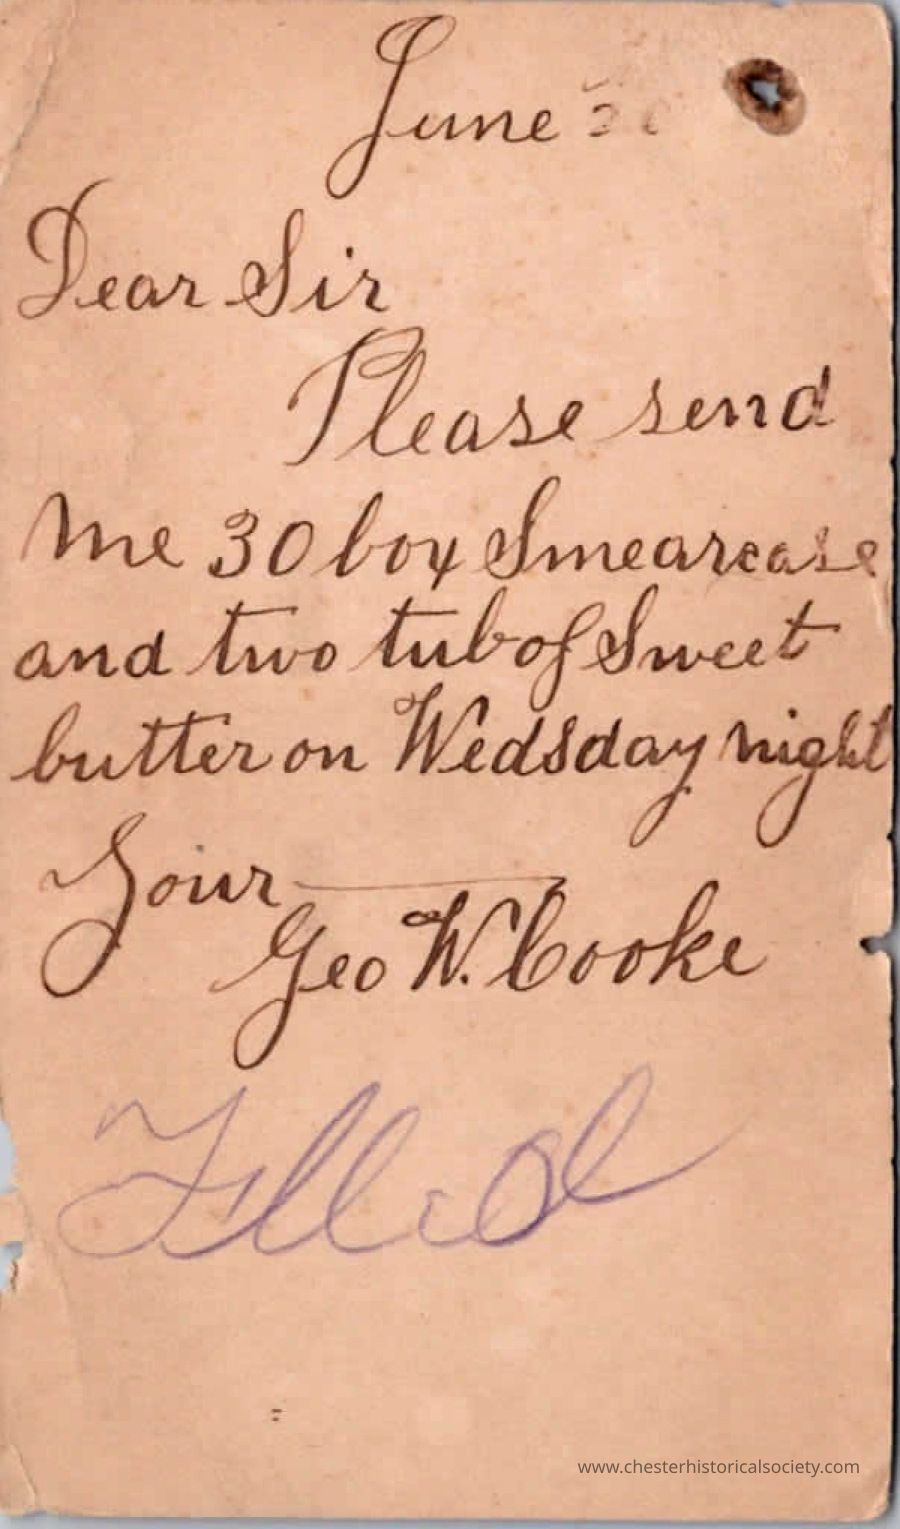 June
Dear Sir
Please send
me 30 box Smearcase
and two tub of Sweet
butter on Wedsday night
Your
Geo W. Cooke
Filled
www.chesterhistoricalsociety.com